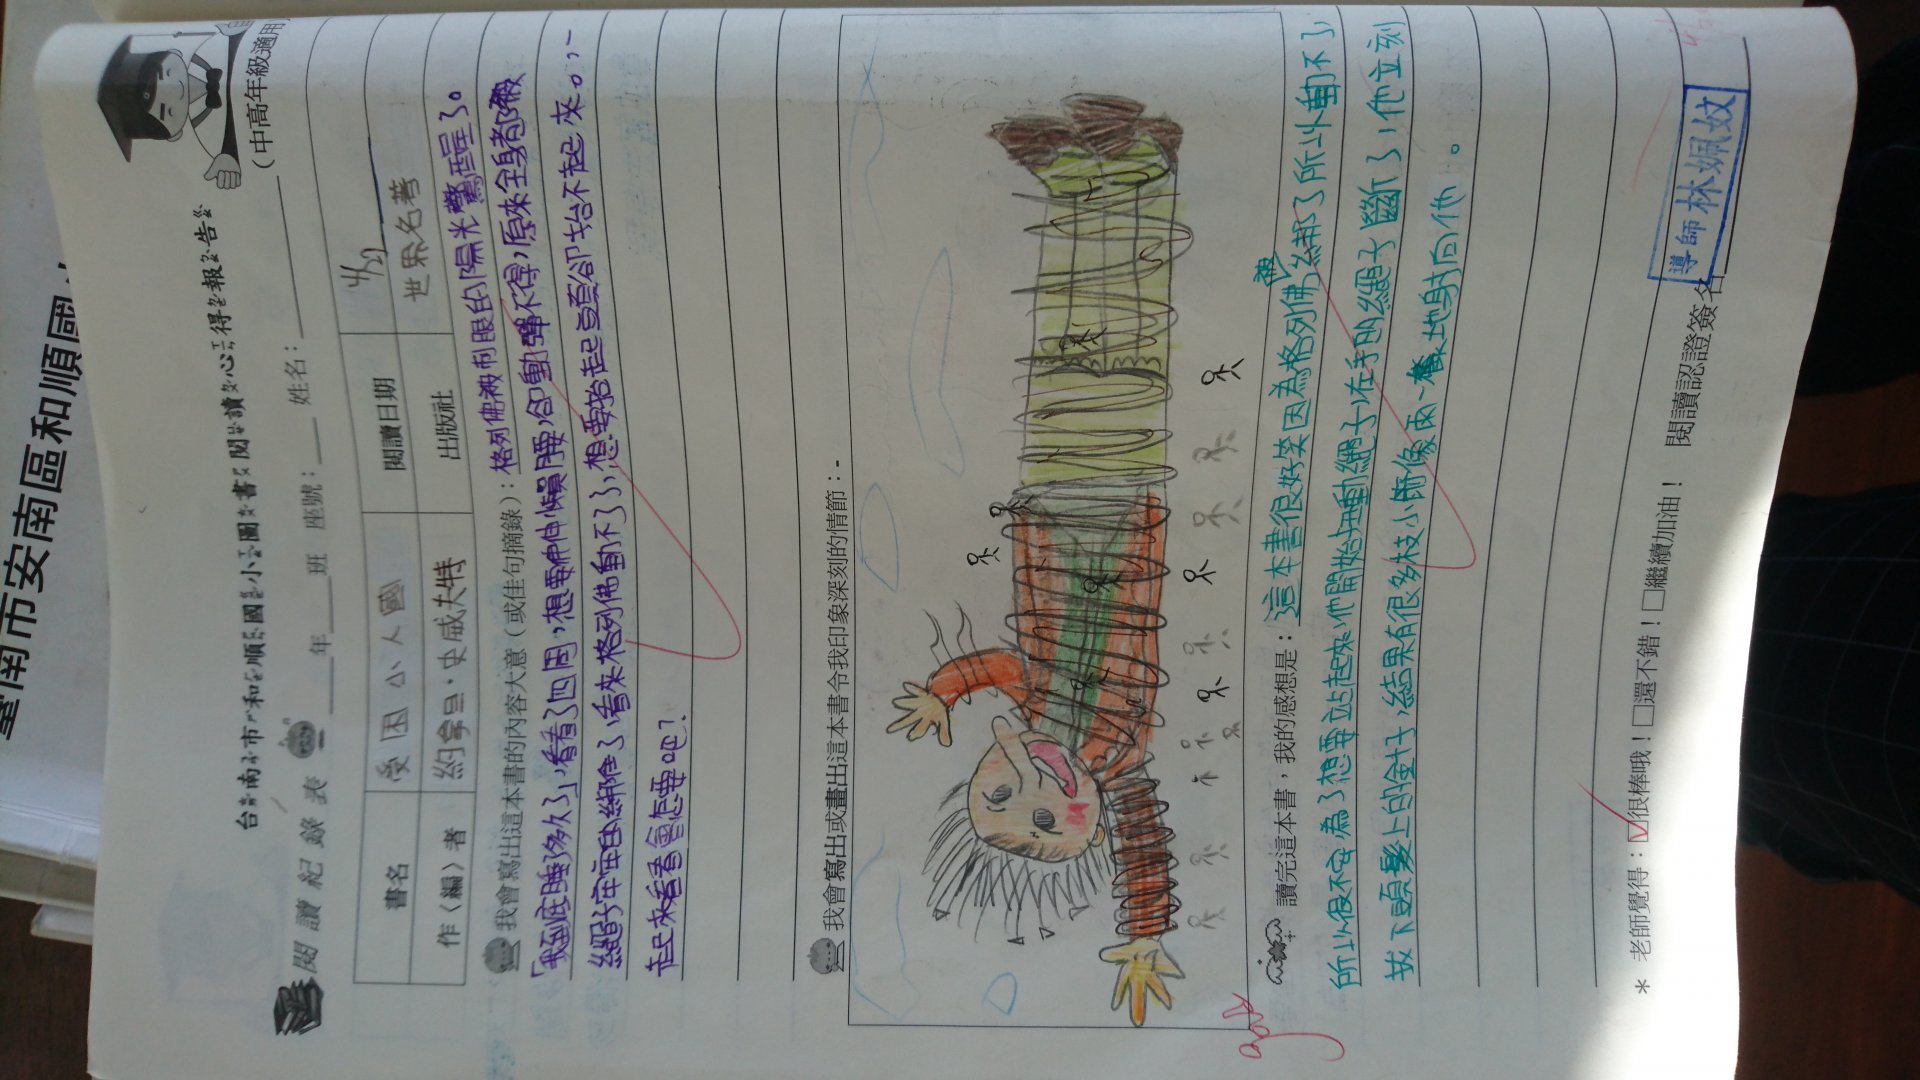 臺南市安南區和順國
台南市和順國小圖書閱讀心得報告
閱讀紀錄表 ＿＿年＿＿班 座號：＿＿ 姓名：＿＿＿＿ （中高年級適用）
書名 受困小人國 閱讀日期 4/22
作（編）者 約拿旦·史威夫特 出版社 世界名著
我會寫出這本書的內容大意（或佳句摘錄）：格列佛被刺眼的陽光驚醒了。
「我到底睡多久了」看看了四周，想要伸伸懶腰，卻動彈不得，原來全身都被
繩子牢牢地綁住了，看來格列佛動不了，想要抬起頭卻抬不起來。，一
起來看看會怎麼吧？
我會寫出或畫出這本書令我印象深刻的情節：
讀完這本書，我的感想是：這本書很好笑因為格列佛被綁了所以動不了，
所以很不安，為了想要站起來，他開始扭動繩子，左手的繩子斷了，他立刻
拔下頭髮上的金十子，結果有很多枝小箭像雨一樣地射向他。
＊ 老師覺得：☑很棒哦！□還不錯！□繼續加油！ 閱讀認證簽名
導師林姵妏